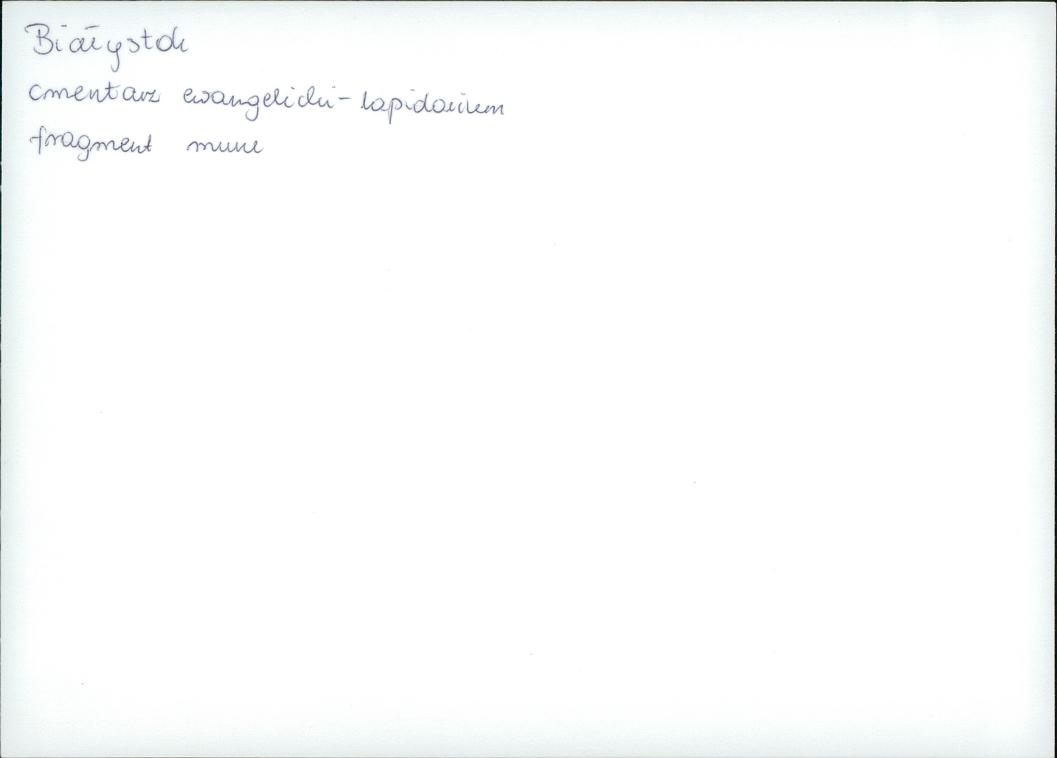 Białystok
cmentarz ewangelicki - lapidarium
fragment muru